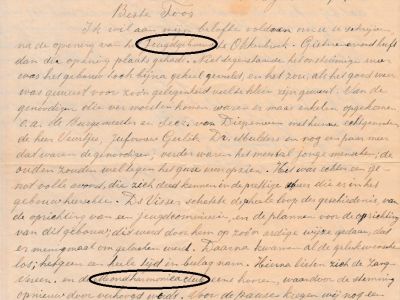 Beste Toos
Ik wil aan mijn belofte voldoen om u te schrijven
na de opening van het Jeugdgebouw te Okkenbroek. Gisteravond heeft
dan die opening plaats gehad. Niettegenstaande het
was het gebouw toch bijna geheel gevuld en het zou, als het goed weer
was geweest voor zoo'n gelegenheid veel te klein zijn geweest. Van de
genoodigden die er moesten komen waren er maar enkelen opgekomen
o.a. de Burgemeester en secr. van Diepenveen met hunne echtgenooten
de heer Veurtje, Juffrouw Dr. Mulders en nog een paar meer
dat waren de genoodigden, verder waren het meest al jonge menschen, de
ouden zouden wel tegen het gure weer opzien. Het was echter een ge-
notvolle avond, die zich deed kennen in de prettige sfeer die er in het
gebouw heerschte. Ds Visser schetste de geheele loop der geschiedenis, van
de oprichting van een jeugdcommissie, en de plannen voor de oprichting
van dit gebouw, dit werd door hem op zoo'n aardige wijze gedaan, dat
er menigmaal om gelachen werd. Daarna kwamen al de gelukwenschen
los, hetgeen een heele tijd in beslag nam. Hierna lieten zich de zang-
en de mondharmonicaclub eens hooren, waardoor de stemming
opnieuw door verhoogd werd. Voor de pauze kregen wij nog een